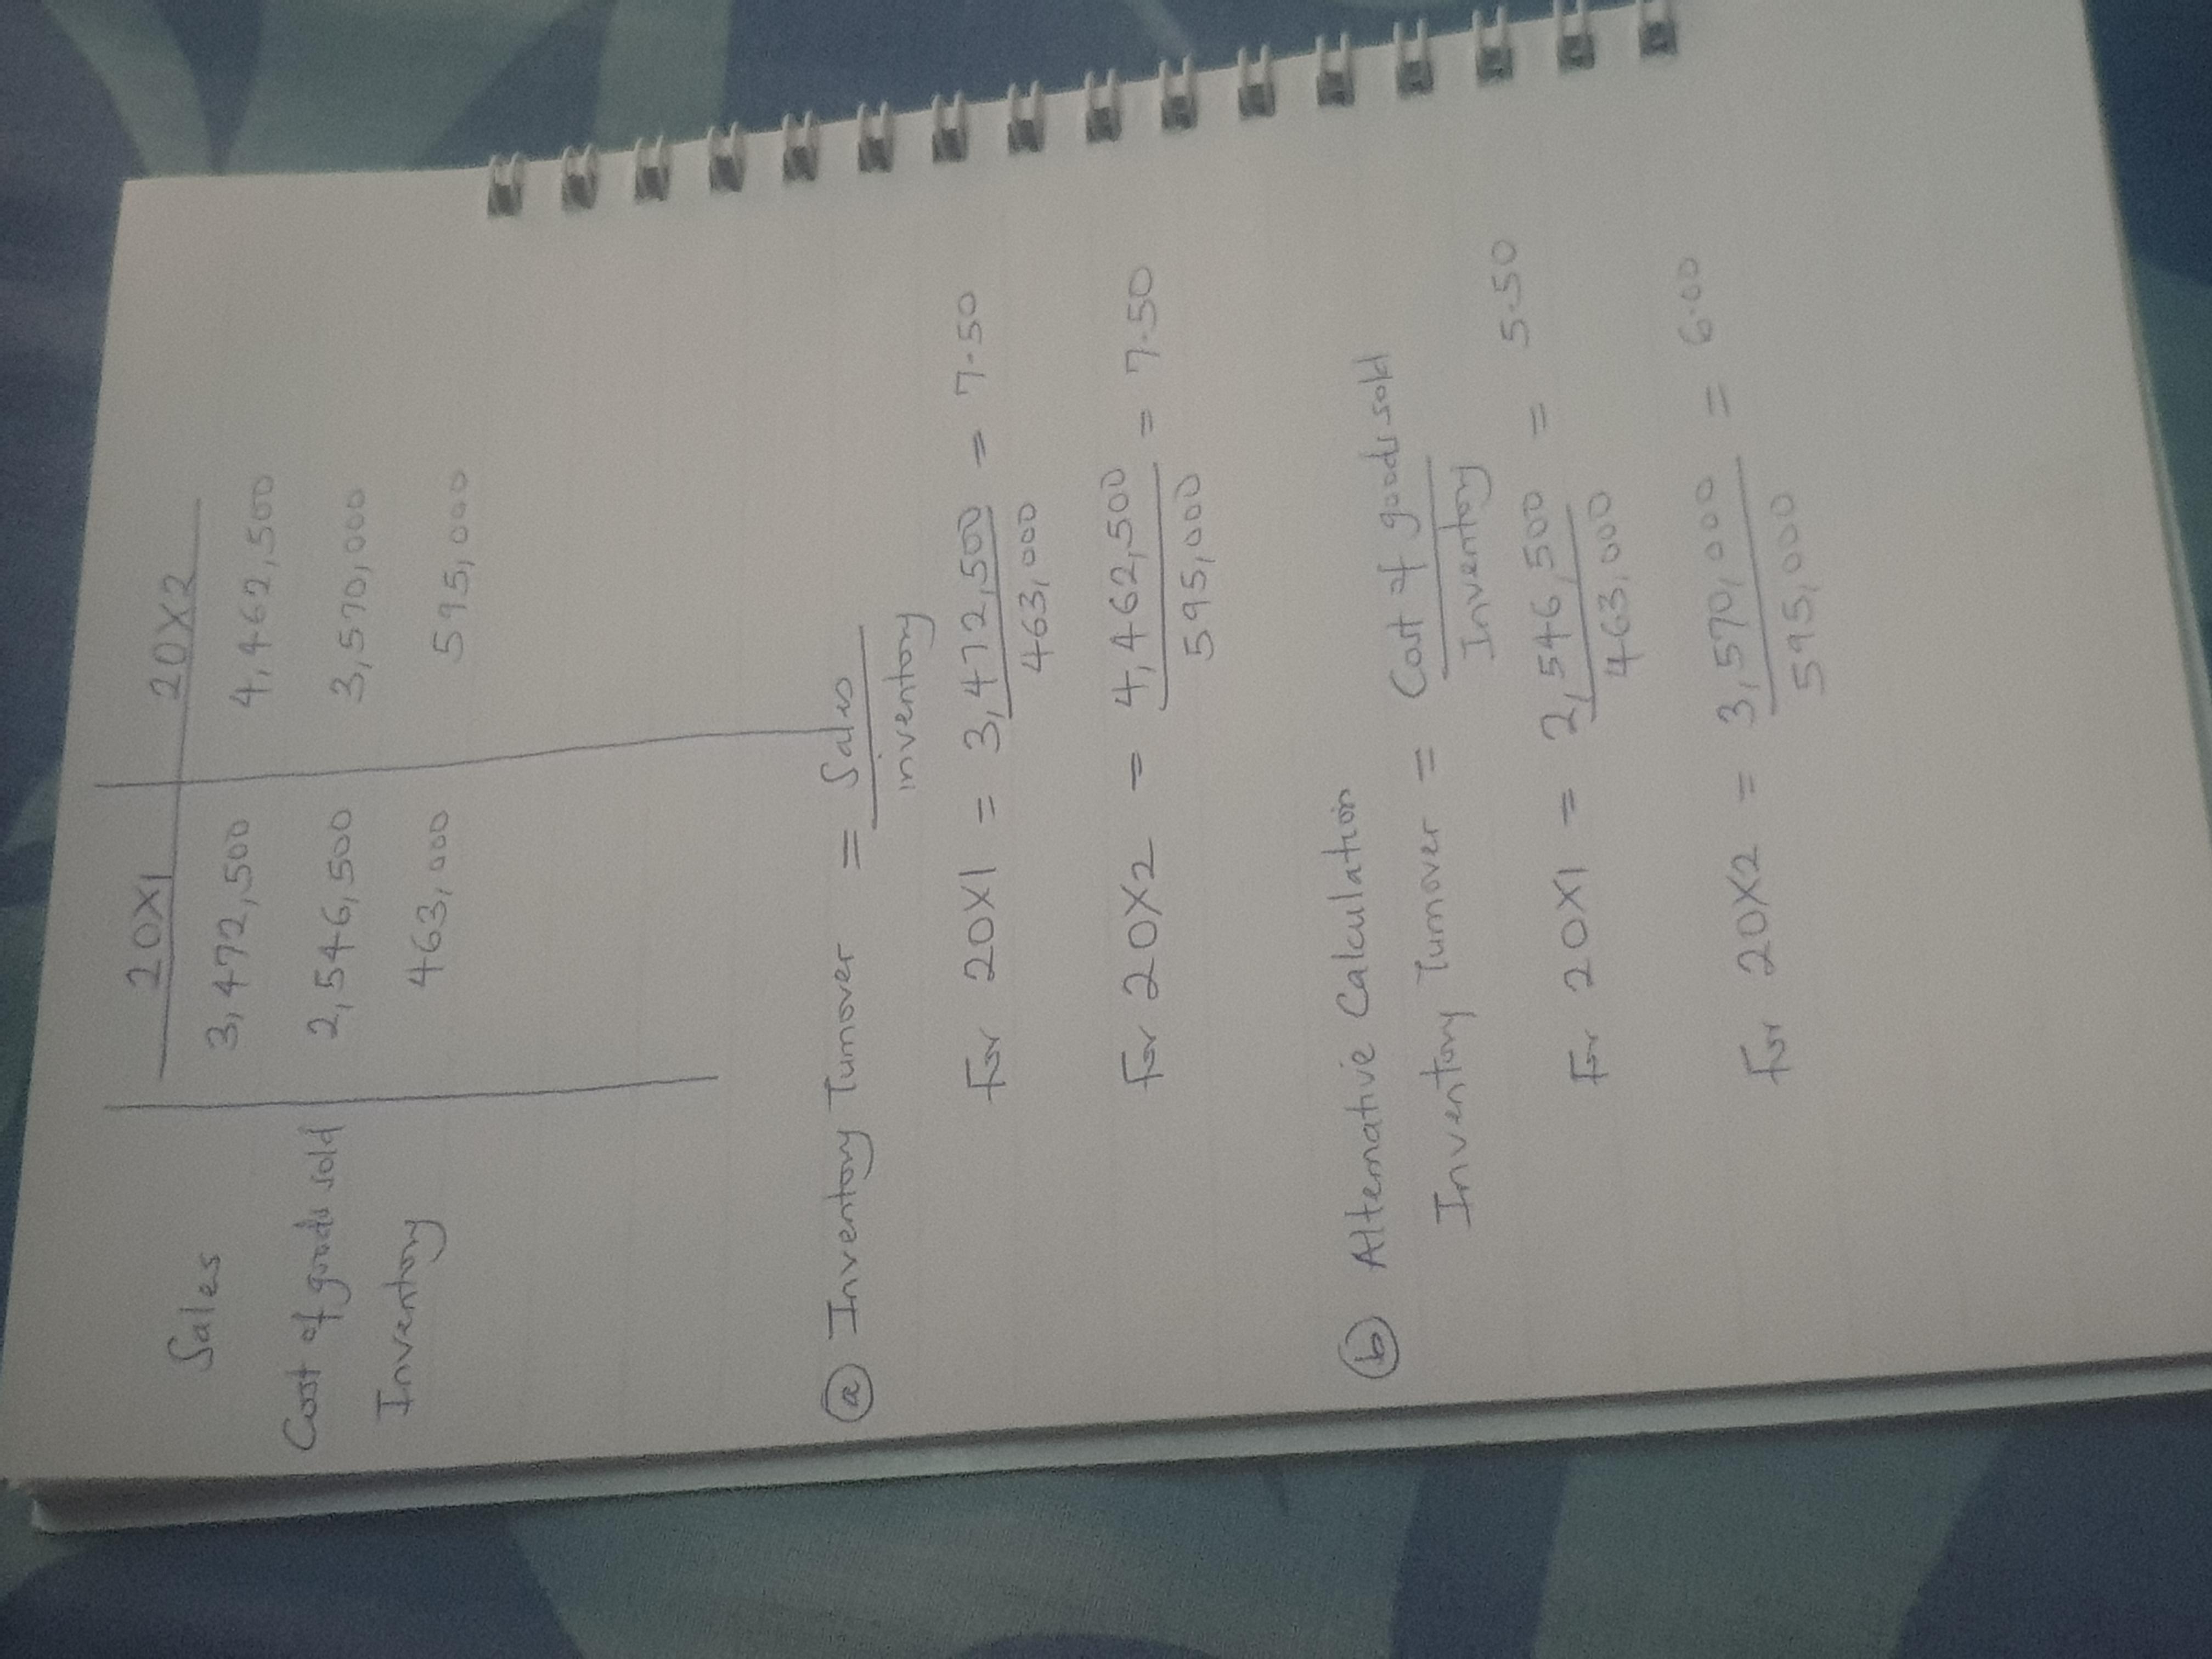 20X1 20X2
Sales 3,472,500 4,462,500
Cost of goods sold 2,546,500 3,570,000
Inventory 463,000 595,000
(a) Inventory Turnover = Sales
inventory
For 20X1 = 3,472,500 = 7.50
463,000
For 20X2 = 4,462,500 = 7.50
595,000
(b) Alternative Calculation
Inventory Turnover = Cost of goods sold
Inventory
For 20X1 = 2,546,500 = 5.50
463,000
For 20X2 = 3,570,000 = 6.00
595,000